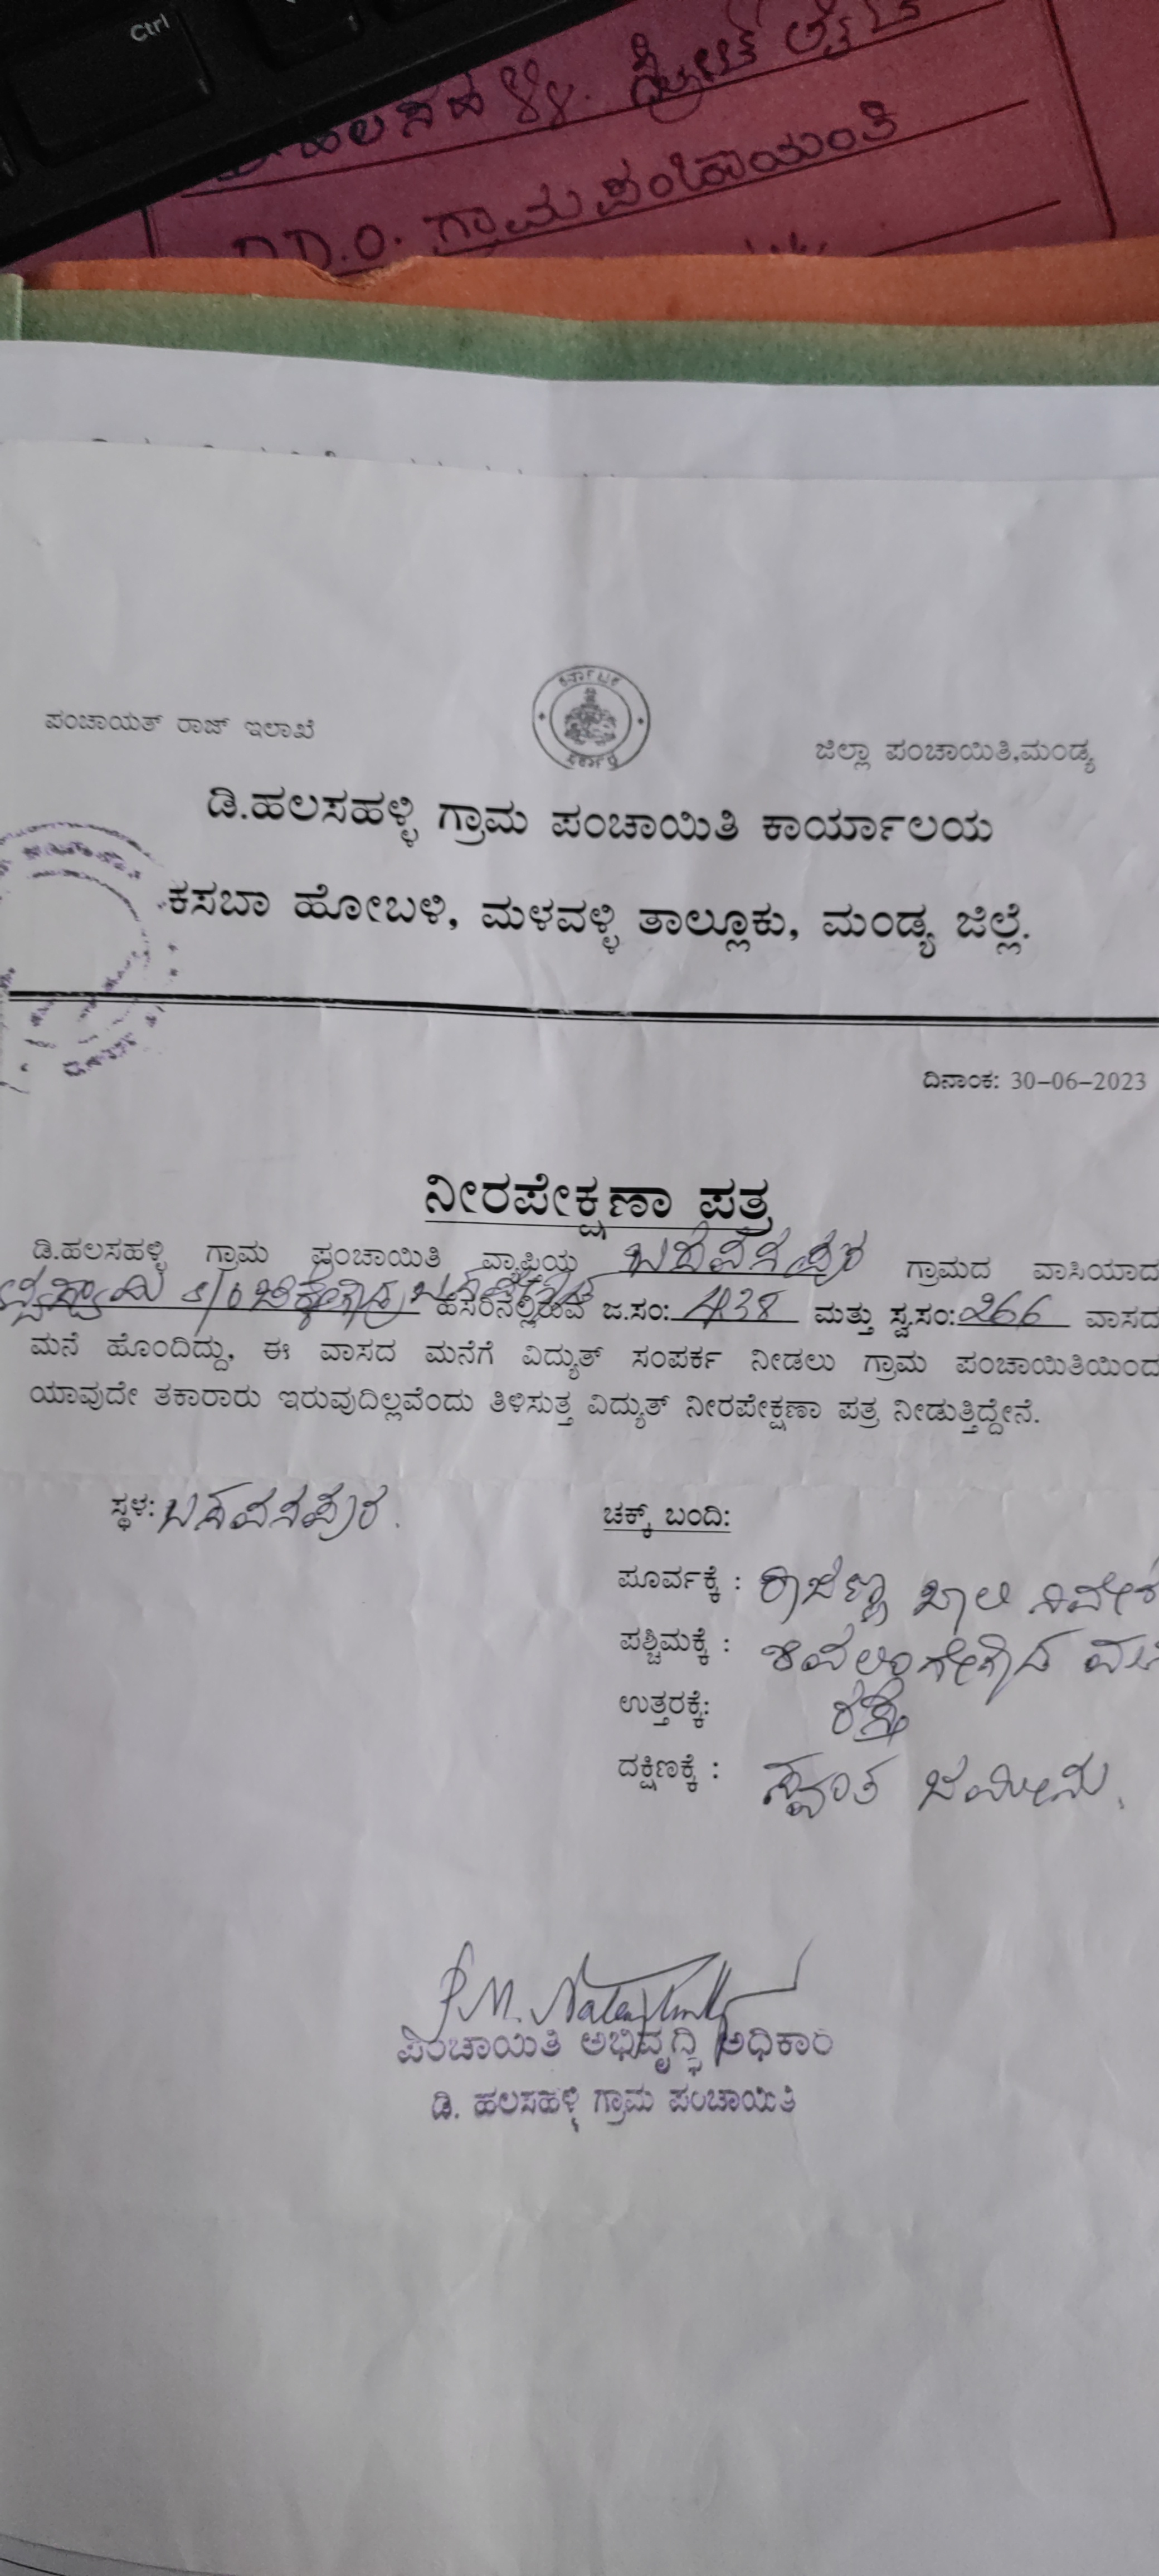 Ctrl
ಗ್ರಾಮ ಪಂಚಾಯಿತಿ
ಕರ್ನಾಟಕ
ಸರ್ಕಾರ
ಪಂಚಾಯತ್ ರಾಜ್ ಇಲಾಖೆ
ಜಿಲ್ಲಾ ಪಂಚಾಯಿತಿ,ಮಂಡ್ಯ
ಡಿ.ಹಲಸಹಳ್ಳಿ ಗ್ರಾಮ ಪಂಚಾಯಿತಿ ಕಾರ್ಯಾಲಯ
ಕಸಬಾ ಹೋಬಳಿ, ಮಳವಳ್ಳಿ ತಾಲ್ಲೂಕು, ಮಂಡ್ಯ ಜಿಲ್ಲೆ.
ದಿನಾಂಕ: 30-06-2023
ನೀರಪೇಕ್ಷಣಾ ಪತ್ರ
ಡಿ.ಹಲಸಹಳ್ಳಿ ಗ್ರಾಮ ಪಂಚಾಯಿತಿ ವ್ಯಾಪ್ತಿಯ ಬಸವನಪುರ ಗ್ರಾಮದ ವಾಸಿಯಾದ
S/o ಹೆಸರಿನಲ್ಲಿರುವ ಜ.ಸಂ: 438 ಮತ್ತು ಸ್ವ.ಸಂ: 266 ವಾಸದ
ಮನೆ ಹೊಂದಿದ್ದು, ಈ ವಾಸದ ಮನೆಗೆ ವಿದ್ಯುತ್ ಸಂಪರ್ಕ ನೀಡಲು ಗ್ರಾಮ ಪಂಚಾಯಿತಿಯಿಂದ
ಯಾವುದೇ ತಕಾರಾರು ಇರುವುದಿಲ್ಲವೆಂದು ತಿಳಿಸುತ್ತ ವಿದ್ಯುತ್ ನೀರಪೇಕ್ಷಣಾ ಪತ್ರ ನೀಡುತ್ತಿದ್ದೇನೆ.
ಸ್ಥಳ: ಬಸವನಪುರ.
ಚಕ್ಕ್ ಬಂದಿ:
ಪೂರ್ವಕ್ಕೆ : ರಾಜಣ್ಣ ಖಾಲಿ
ಪಶ್ಚಿಮಕ್ಕೆ :
ಉತ್ತರಕ್ಕೆ: ರಸ್ತೆ
ದಕ್ಷಿಣಕ್ಕೆ : ಸ್ವಂತ ಜಮೀನು.
ಪಂಚಾಯಿತಿ ಅಭಿವೃದ್ಧಿ ಅಧಿಕಾರಿ
ಡಿ. ಹಲಸಹಳ್ಳಿ ಗ್ರಾಮ ಪಂಚಾಯಿತಿ